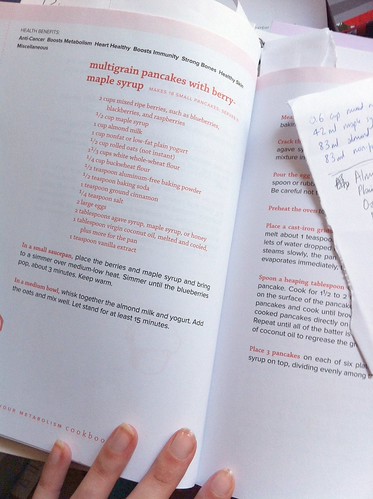 HEALTH BENEFITS:
Anti-Cancer Boosts Metabolism Heart Healthy Boosts Immunity Strong Bones Healthy Skin
Miscellaneous
multigrain pancakes with berry-
maple syrup MAKES 18 SMALL PANCAKES; SERVES 6
2 cups mixed ripe berries, such as blueberries,
blackberries, and raspberries
1/3 cup maple syrup
1 cup almond milk
1 cup nonfat or low-fat plain yogurt
1/2 cup rolled oats (not instant)
cups white whole-wheat flour
1/4 cup buckwheat flour
teaspoons aluminum-free baking powder
1/2 teaspoon baking soda
1 teaspoon ground cinnamon
1/4 teaspoon salt
2 large eggs
2 tablespoons agave syrup, maple syrup, or honey
1 tablespoon virgin coconut oil, melted and cooled,
plus more for the pan
1 teaspoon vanilla extract
In a small saucepan, place the berries and maple syrup and bring
to a simmer over medium-low heat. Simmer until the blueberries
pop, about 3 minutes. Keep warm.
In a medium bowl, whisk together the almond milk and yogurt. Add
the oats and mix well. Let stand for at least 15 minutes.
YOUR METABOLISM cookbook
baking
Crack the
agave s
mixture in
Pour the egg
spoon or rubb
Be careful not
Preheat the oven
Place a cast-iron gri
melt about 1 teaspoon
lets of water dropped
steams slowly, the pan
evaporates immediately,
Spoon a heaping tablespoon
pancake. Cook for 1 1/2 to 2
on the surface of the panca
pancakes and cook until brow
cooked pancakes directly on
Repeat until all of the batter is
of coconut oil to regrease the gr
Place 3 pancakes on each of six pla
syrup on top, dividing evenly among
0.6 cup mixed
42 ml maple
83ml almond
83ml